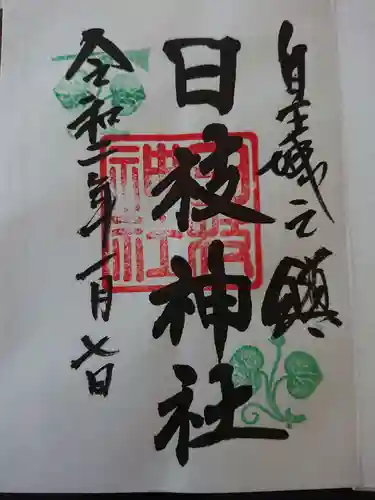 皇城之鎮
日枝神社
日枝神社
令和二年一月七日